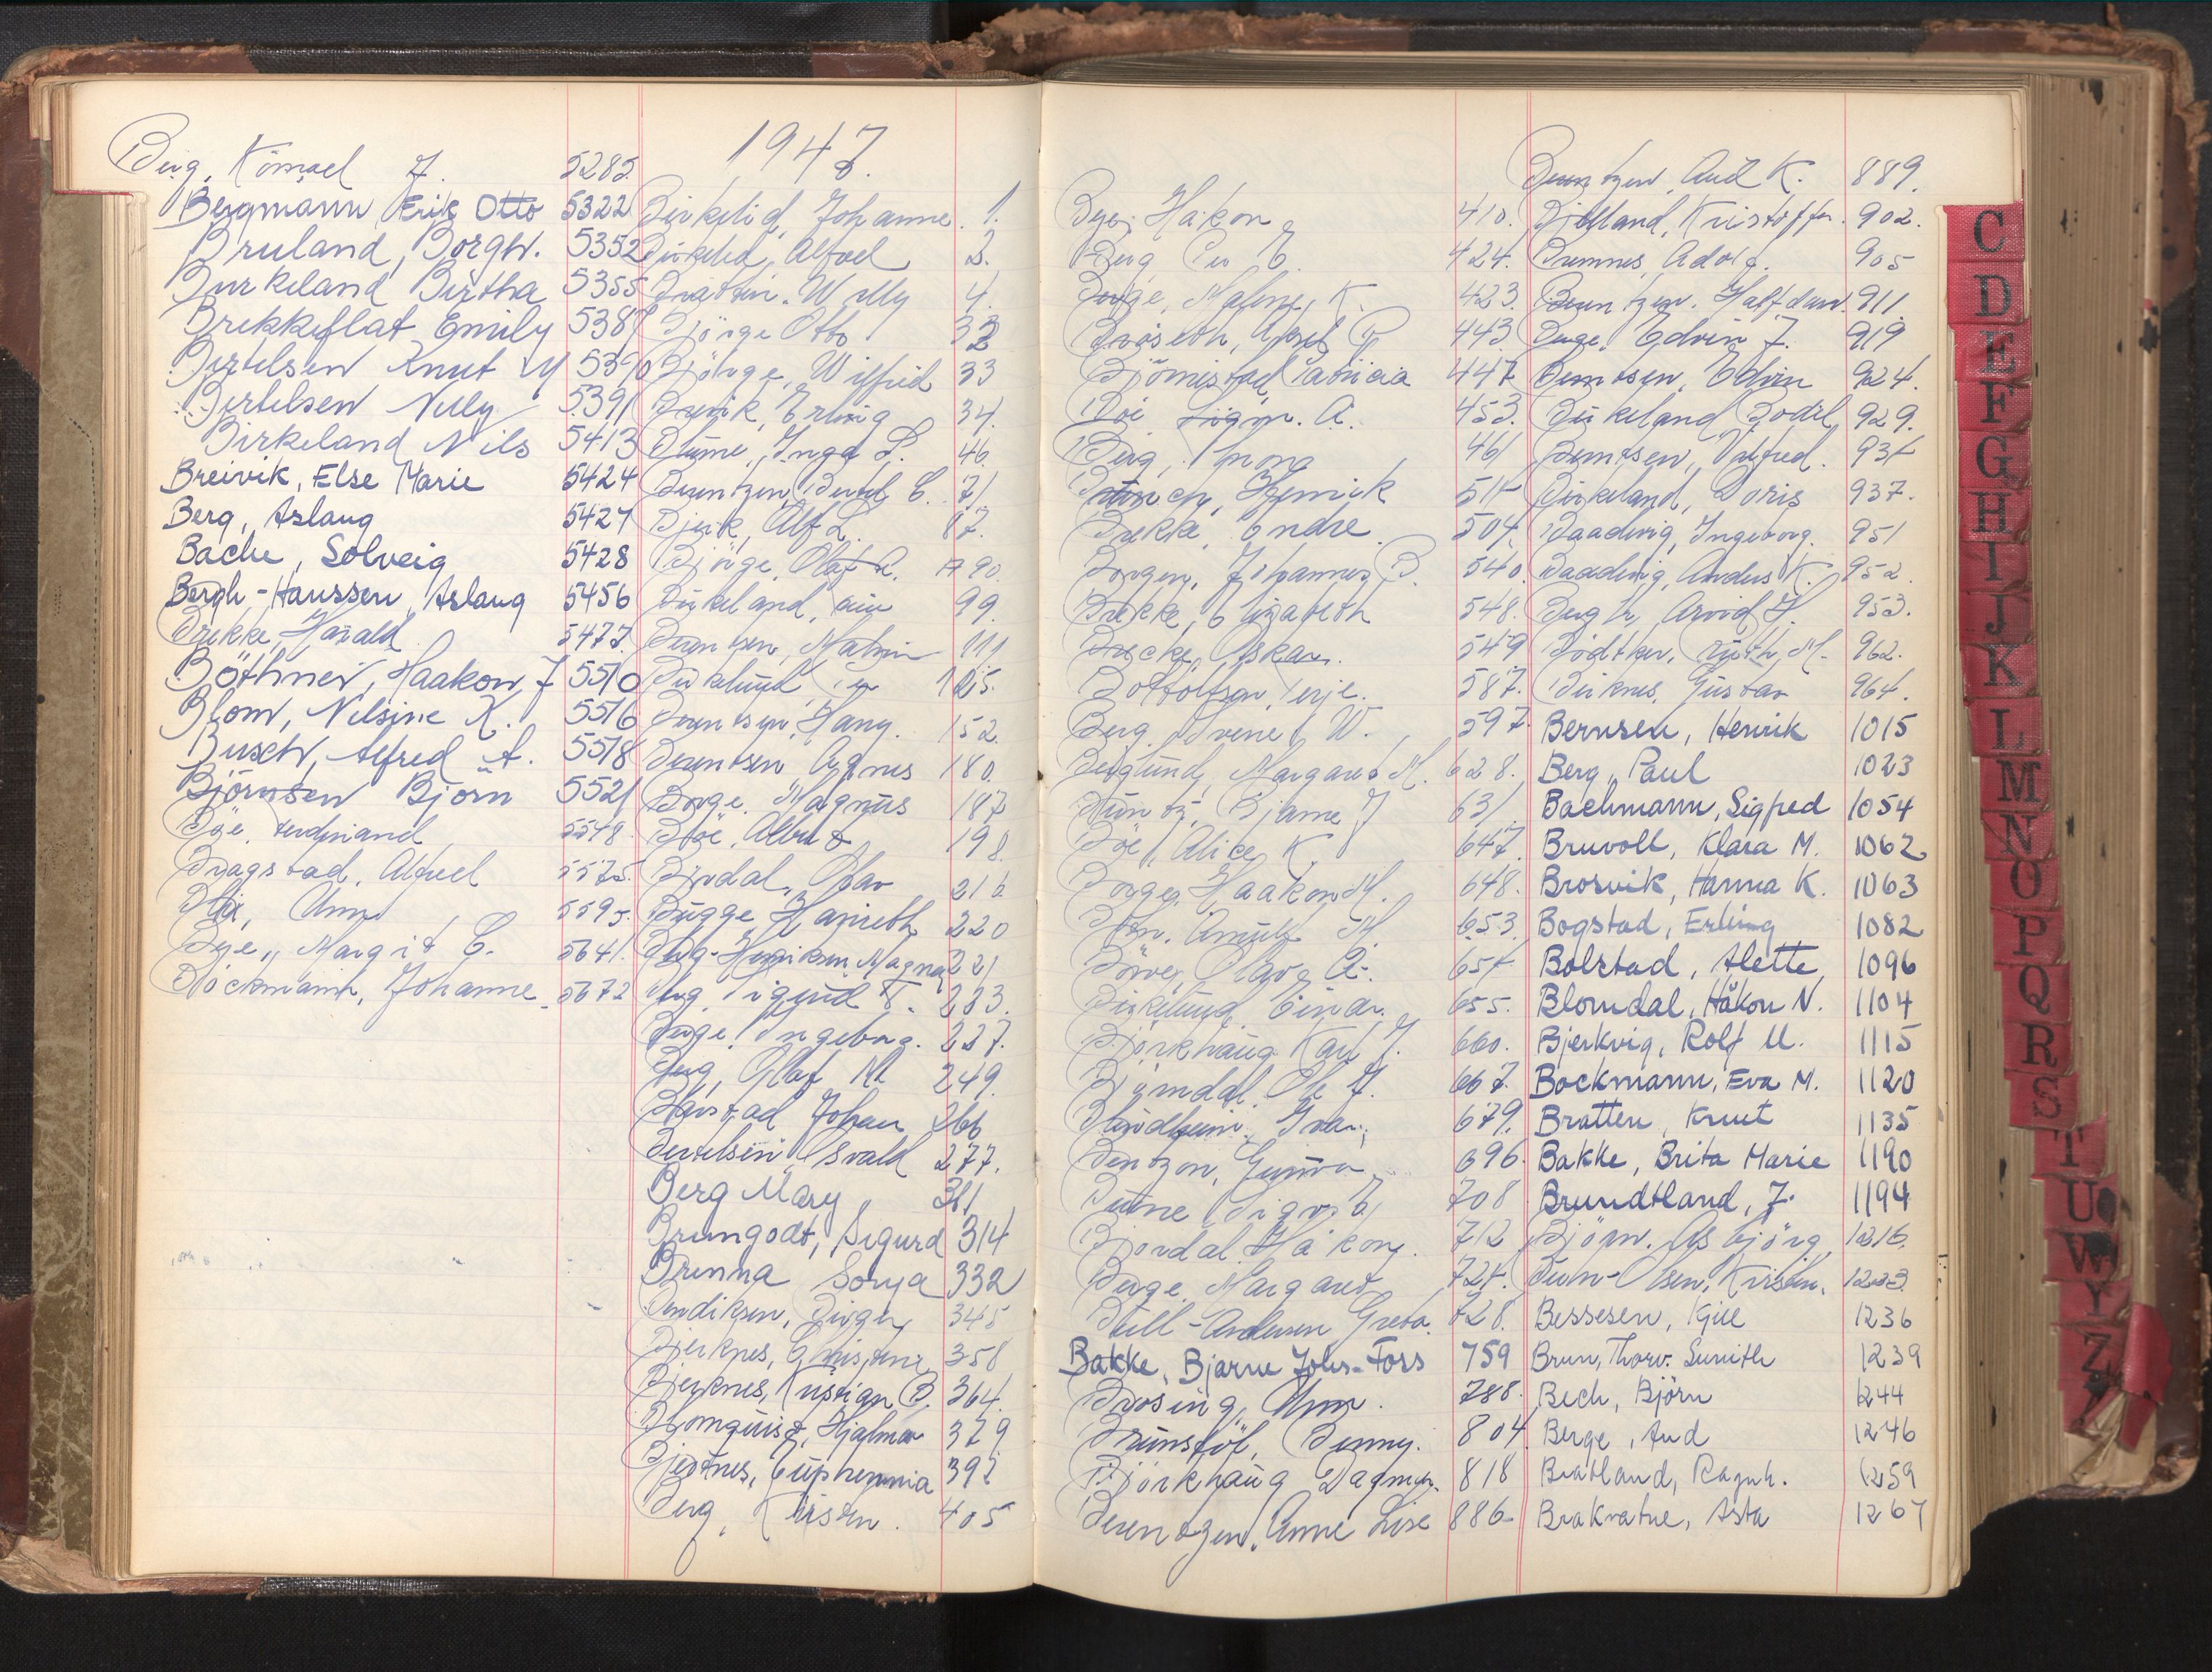 Berg, 5285
Bergmann Erik Otto 5322
Bruland, Borghi. 5352
Birkeland Birtha 5355
Brekkeflat Emily 5387
Bertelsen Knut M 5390
Bertelsen Nelly 5391
Birkeland Nils 5413
Breivik, Else Marie 5424
Berg, Aslaug 5427
Bache, Solveig 5428
Bergh-Hanssen, Aslaug 5456
Brekke, Harald 5477.
Böthner, Haakon J 5510
Blom, Nilsine K. 5516
Busch, Alfred A. 5518
Björnsen Bjorn 5521
Böe, Ferdinand 5548.
Bragstad, Alfred 5575.
5595.
Bye, Margit C. 5641.
Böckmann, Johanne 5672
1948.
Birkelid, Johanne. 1.
Birkelid Alfred 2.
Bratten. Willy 4.
Björge Otto 32
Björge, Wilfrid 33
Brevik, Erling 34.
Blume, Inga L. 46.
Berentzen, Bertel C. 71.
Bjerk, Alf L. 87.
Björge, Olaf A. 90.
Birkeland, 99.
Berentsen, Malvin 111
Birkelund, 125.
Berentsen, Hans. 152.
Berentsen Agnes 180.
Borge. Magnus 187
Böe, Albert 198
Bjordal, Olav 216
Bugge Hanneth 220
Berg-Henriksen, Magna 221
Berg, Sigurd F. 223.
Berge. Ingeborg. 227.
Berg, Olaf M 249.
Johan 266
Bertelsen Osvald 277.
Berg Mary 311
Brungodt, Sigurd 314
Brenna Sonja 332
Bendiksen, Birger 345
Bjerknes, Christine 358
Bjerknes, Kristian B. 364.
Blomquist, Hjalmar 379
Bjertnes, Euphemia 392
Berg, Kirsten. 405
Bye, Håkon 410.
Berg Per E. 424.
Berge, K. 423.
Aksel 443.
Björnestad, Patricia 447
Böe Sigm. A. 453.
Berg, 461
Henrik 515
Brekke, Endre. 504.
Borgen, Johannes B. 540.
Brekke, Elisabeth 548.
Oskar. 549
Bottolfsen, Terje. 587.
Berg Svene W. 597
Berglund, Margaret M. 628.
Bjarne J 631
Böe, Alice K. 647.
Borge, Haakon M. 648.
653.
654
Birkelund Einar. 655.
Björkhaug Kari J. 660.
Björndal. Ole J. 667.
Blindheim, Ivar. 679.
Bentzon, Gunvor 696.
708
Bjordal Håkon. 712
Berge. Margaret 724.
Bull-Andersen Greta. 728.
Bakke, Bjarne Johs-Foss 759
Brosing, 788.
Brunstöl, Benny. 804
Björkhaug Dagmar. 818
Berentzen, Anne Lise 886
Berentzen, Aud K. 889.
Bjelland, Kristoffer. 902.
Bremnes, Adolf. 905
Berentzen. Halfdan. 911
Berge. Edvin J. 919
Berntsen, Edvin 924.
Birkeland, Bodil 929.
Berntsen, Valfred. 934
Birkeland, Doris 937.
Baadvig, Ingeborg. 951
Baadvig, Anders K. 952.
Bergh, Arvid H. 953.
Bødtker, Ruth M. 962.
Birknes, Gustav 964.
Bernsen, Henrik 1015
Berg, Paul 1023
Bachmann, Sigfred 1054
Bruvoll, Klara M. 1062
Brosvik, Hanna K. 1063
Bogstad, Erling 1082
Bolstad, Alette 1096
Blomdal, Håkon N. 1104
Bjerkvig, Rolf M. 1115
Bockmann, Eva M. 1120
Bratten, Knut 1135
Bakke, Brita Marie 1190
Brundtland, J. 1194
Björn. Asbjörg 1216.
Kirsten. 1233
Bessesen, Kjell 1236
Brun, Thorv. Sunith 1239
Bech, Björn 1244
Berge, Aud 1246
Bratland, Ragnh. 1259
Brakvatne, Asta 1267
C
D
E
F
G
H
I
J
K
L
M
N
O
P
Q
R
S
T
U
W
Y
Z